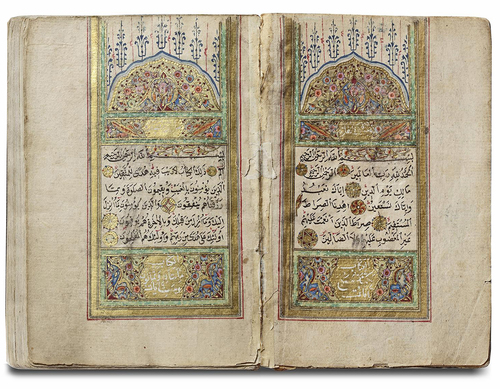 بِسْمِ اللهِ الرَّحْمٰنِ الرَّحِيمِ
اَلْحَمْدُ لِلّٰهِ رَبِّ الْعَالَمِينَ الرَّحْمٰنِ الرَّحِيمِ
مَالِكِ يَوْمِ الدِّينِ اِيَّاكَ نَعْبُدُ
وَاِيَّاكَ نَسْتَعِينُ اِهْدِنَا الصِّرَاطَ
الْمُسْتَقِيمَ صِرَاطَ الَّذِينَ اَنْعَمْتَ عَلَيْهِمْ
غَيْرِ الْمَغْضُوبِ عَلَيْهِمْ وَلَا الضَّالِّينَ
بِسْمِ اللهِ الرَّحْمٰنِ الرَّحِيمِ
الم ذٰلِكَ الْكِتَابُ لَا رَيْبَ فِيهِ هُدًى لِلْمُتَّقِينَ
الَّذِينَ يُؤْمِنُونَ بِالْغَيْبِ وَيُقِيمُونَ الصَّلٰوةَ وَمِمَّا
رَزَقْنَاهُمْ يُنْفِقُونَ وَالَّذِينَ يُؤْمِنُونَ
بِمَا اُنْزِلَ اِلَيْكَ وَمَا اُنْزِلَ مِنْ قَبْلِكَ وَبِالْاٰخِرَةِ هُمْ يُوقِنُونَ
اُولٰئِكَ عَلٰى هُدًى مِنْ رَبِّهِمْ وَاُولٰئِكَ هُمُ الْمُفْلِحُونَ